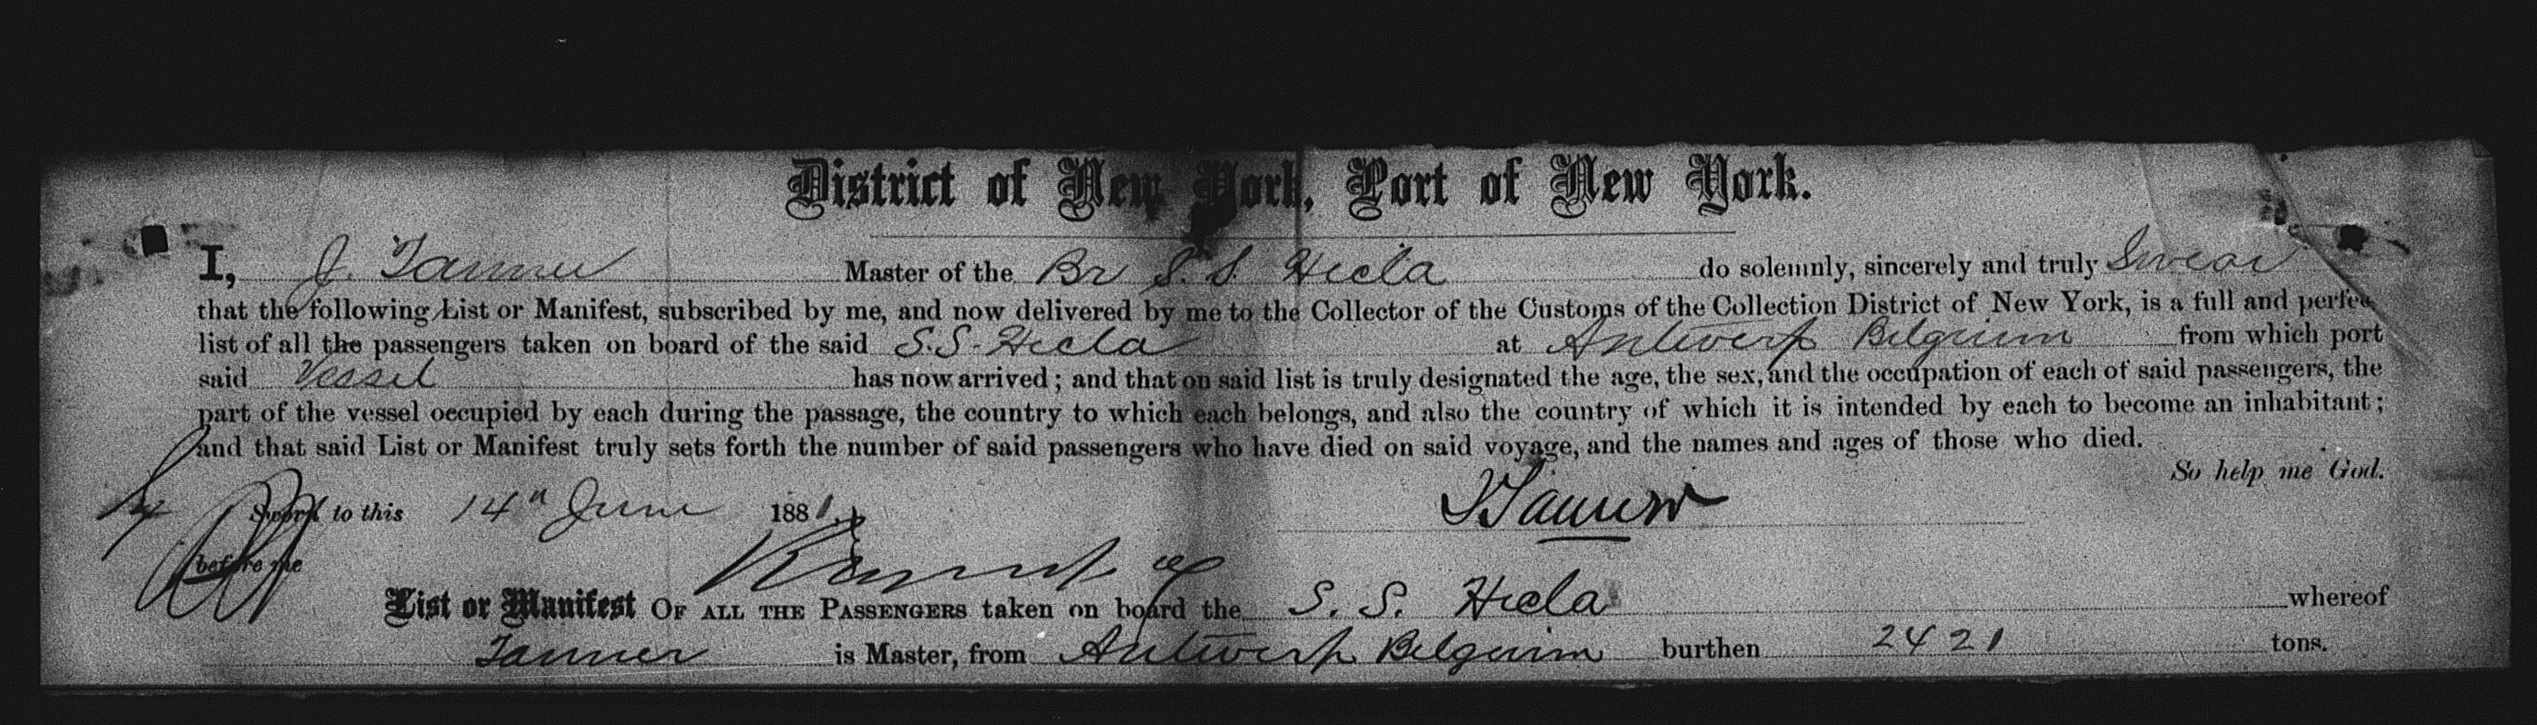 District of New York, Port of New York.
I, J. Tanner Master of the Br S.S. Hecla do solemnly, sincerely and truly Swear
that the following List or Manifest, subscribed by me, and now delivered by me to the Collector of the Customs of the Collection District of New York, is a full and perfect
list of all the passengers taken on board of the said S.S. Hecla at Antwerp Belgium from which port
said Vessel has now arrived; and that on said list is truly designated the age, the sex, and the occupation of each of said passengers, the
part of the vessel occupied by each during the passage, the country to which each belongs, and also the country of which it is intended by each to become an inhabitant;
and that said List or Manifest truly sets forth the number of said passengers who have died on said voyage, and the names and ages of those who died.
So help me God.
Sworn to this 14" June 1881. J Tanner
before me
List or Manifest OF ALL THE PASSENGERS taken on board the S. S. Hecla whereof
Tanner is Master, from Antwerp Belguim burthen 2421 tons.